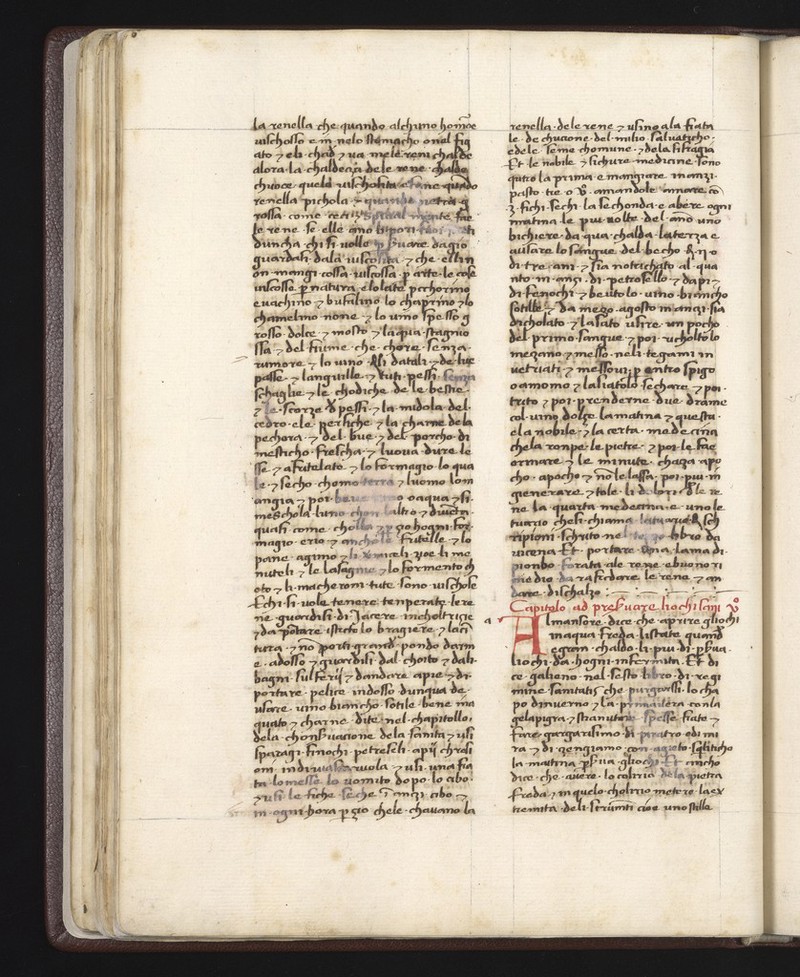 la renella che quando alchuno homōe
vischosso e in nelo stomacho o nel fig
ato ⁊ eli chald ⁊ va nele reni chalde
alora la chaldeza dele rene chalde
chuoce quela vischosita e fane quādo
renella pichola ⁊ quando petra g
rossa come
le rene se elle ano
duncha chi si volle ꝑseruare dagio
guardasi dala viscosita ⁊ che ellin
on mangi cossa viscossa ꝑ arte le cose
viscosse ꝑ natura e lo late pechorino
e vachino ⁊ bufalino lo chaprino ⁊ lo
chamelino none ⁊ lo vino spesso g
rosso dolce ⁊ mosto ⁊ laqua stagnio
ssa ⁊ del fiume che chore senza
rumore ⁊ lo vino datali ⁊ de lue
passe ⁊ languille ⁊ tuti pessi senza
schaglie ⁊ le chodiche de le bestie
⁊ le scorze d pessi ⁊ la midola del
cedro e le persiche ⁊ la charne dela
pechora ⁊ del bue ⁊ del porcho di
mesticho frescha ⁊ luova dure le
sse ⁊ afritelate ⁊ lo formagio lo qua
le ⁊ secho chomo terra ⁊ luomo lom
angia ⁊ poi beue o oaqua ⁊ si
meschola luno chon laltro ⁊ diuētn
quasi come cholla ⁊ ꝑ zio hogni for
magio e rio ⁊ anchole fritelle ⁊ lo
pane azimo ⁊ li vermiceli zioe li me
nuteli ⁊ le lasagnie ⁊ lo formento ch
oto ⁊ li macheroni tute sono vischose
Echi si vole tenere tenperate le re
ne guardisi di Jacere in choltricie
⁊ da portare istrete le bragiere ⁊ laci
tura ⁊ nō porti grand pondo darm
e adosso ⁊ guardisi dal choito ⁊ dali
bagni sulferij ⁊ dandare apie ⁊ di
portare pelice indosso dunqua de
usare vino biancho sotile bene ina
quato ⁊ charne dite nel chapitollo
dela chonseruacione dela sanita ⁊ usi
sparagi finochi petreseli apij chresi
oni indiuia ⁊ usi una fia
ta lo messe lo vomito dopo lo cibo
⁊ usi le fiche seche ī anzi cibo ⁊
in ogni hora ꝑ zio chele chauano la
renella dele rene ⁊ usino ala fiata
le de chucione del milio saluaticho
e dele seme chomune ⁊ dela sifragia
Et le nobile ⁊ sichure medicine sono
qutro la prima e mangiare inanzi
pasto tre o v amandole amare co
3 fichi sechi la sechonda e abere ogni
matina le piu uolte del ano uno
bichiere da qua chalda la terza e
ausare lo sangue del becho
di tre ani ⁊ sia notrichato al qua
nto in anzi di petrosello ⁊ dapi ⁊
di fenochi ⁊ beuto lo uino biancho
sotile ⁊ da mezo agosto in anzi sia
dicholato ⁊ lasato usire un pocho
del primo sangue ⁊ poi ucholto lo
mezano ⁊ messo neli tegami in
uetriati ⁊ messoui ꝑ entro spigo
o amomo ⁊ laliatolo sechare ⁊ poi
trito ⁊ poi prenderne due drame
col vino dolçe la matina ⁊ questa
e la nobile ⁊ la certa medecina
chela ronpe le pietre ⁊ poi le fae
orinare ⁊ le minute chaza apo
cho apocho ⁊ nō le lassa poi piu in
gienerare ⁊ tole li dolori dle re
ne la quarta medecina e uno le
tuario chesi chiama
ripioni schrito nel terzo libro da
vicena Et portare una lama di
pionbo forata ale rene e buono ri
medio da rafredare le rene ⁊ an
dare dischalzo
Capitolo ad preseruare li ochi sani
Almansore dice che aprire gliochi
in aqua freda listate quand
e gran chaldo li piu di ꝑserua
li ochi da hogni infermita Et di
ce galieno nel sesto libro di regi
mine sanitatis che purgarssi lo cha
po dinuerno ⁊ la primauera con la
gelapigra ⁊ stranutare spesse fiate ⁊
fare gargarisimo di piratro e di mi
ra ⁊ di gengiamo con aquelo sqiliticho
la matina ꝑserua gliochi Et ancho
dice che auere lo colirio dela pietra
freda ⁊ in quelo cholirio metere la ex
tremita deli strumti cioe uno stille